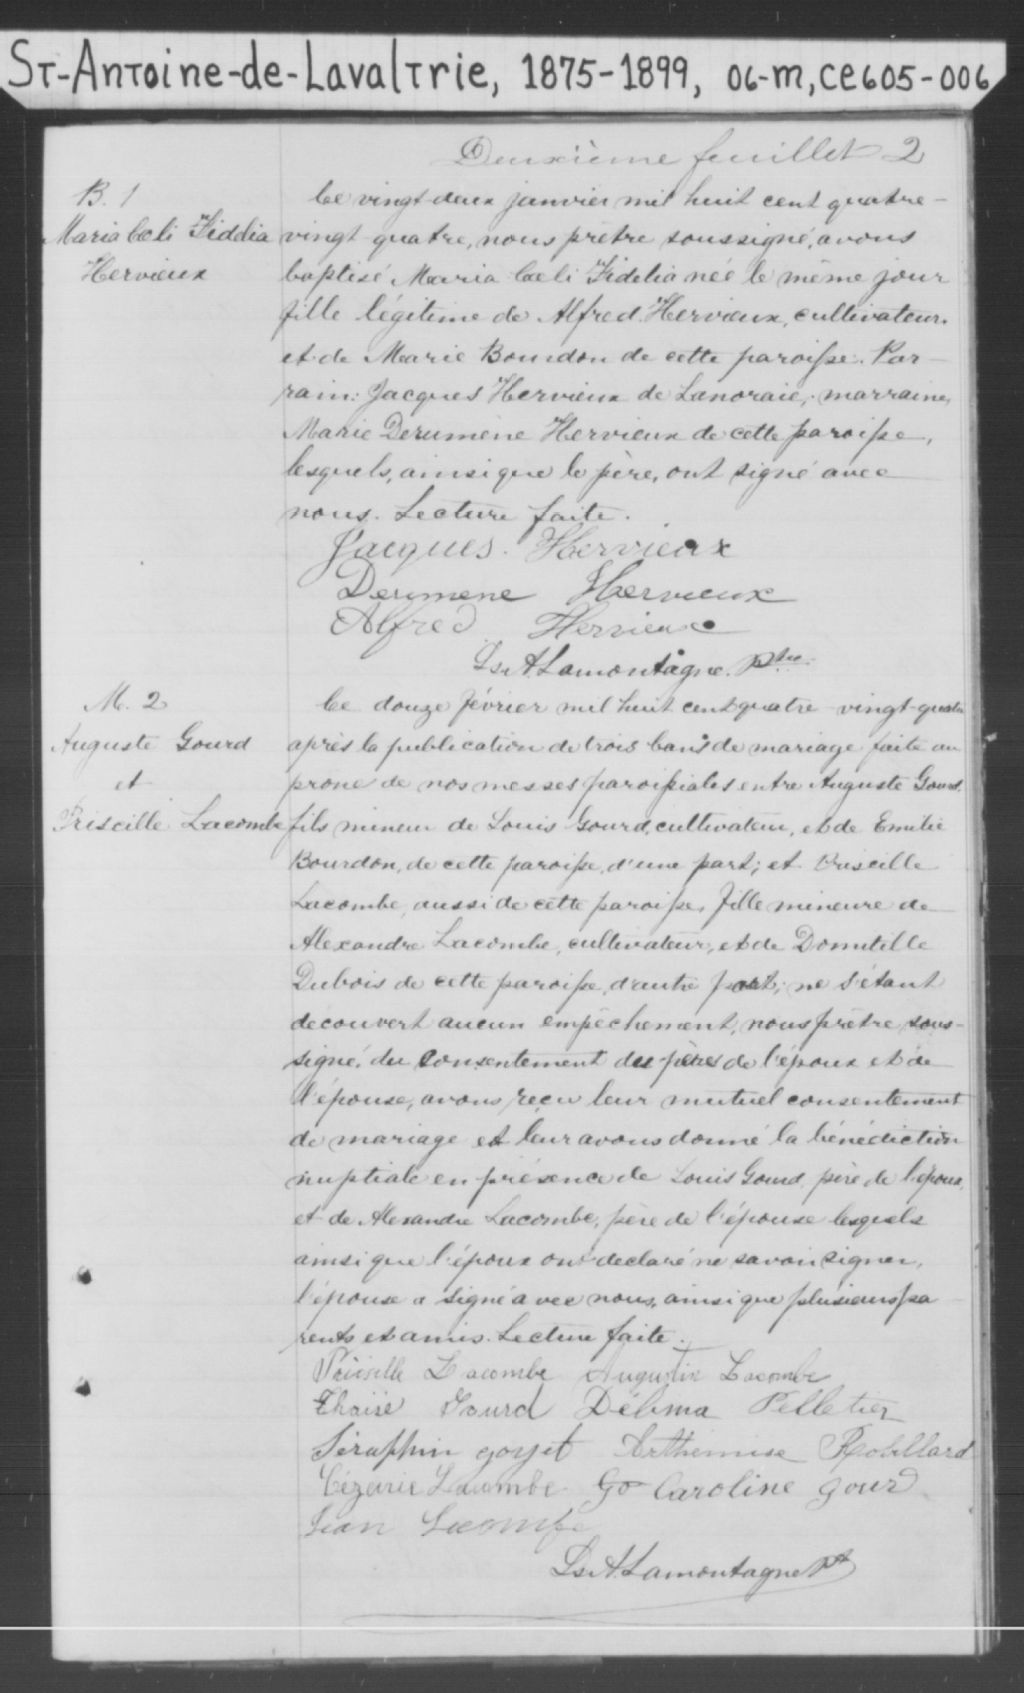 St-Antoine-de-Lavaltrie, 1875-1899, 06-m, ce605-006
Deuxième feuillet 2
B. 1
Maria Cœli Fidélia
Hervieux
Le vingt-deux janvier mil huit cent quatre-
vingt-quatre, nous prêtre soussigné, avons
baptisé Maria Cœli Fidelia née le même jour
fille légitime de Alfred Hervieux, cultivateur,
et de Marie Bourdon de cette paroisse. Par-
rain: Jacques Hervieux de Lanoraie; marraine,
Marie Derumène Hervieux de cette paroisse,
lesquels, ainsi que le père, ont signé avec
nous. Lecture faite.
Jacques. Hervieux
Derumene Hervieux
Alfred Hervieux
Ls A Lamontagne. Ptre.
M. 2
Auguste Gourd
et
Priscille Lacombe
Le douze février mil huit cent quatre-vingt-quatre
après la publication de trois bans de mariage faite au
prone de nos messes paroissiales entre Auguste Gourd,
fils mineur de Louis Gourd, cultivateur, et de Emilie
Bourdon, de cette paroisse, d'une part; et Priscille
Lacombe, aussi de cette paroisse, fille mineure de
Alexandre Lacombe, cultivateur, et de Domitille
Dubois de cette paroisse, d'autre part; ne s'étant
découvert aucun empêchement, nous prêtre sous-
signé, du consentement des pères de l'époux et de
l'épouse, avons reçu leur mutuel consentement
de mariage et leur avons donné la bénédiction
nuptiale en présence de Louis Gourd, père de l'époux,
et de Alexandre Lacombe, père de l'épouse lesquels
ainsi que l'époux ont declaré ne savoir signer,
l'épouse a signé avec nous, ainsi que plusieurs pa
rents et amis. Lecture faite.
Priscille Lacombe Augustin Lacombe
Thaïse Gourd Délima Pelletier
Séraphin goyet Arthémise Robillard
Cézarie Lacombe Go Caroline gourd
Jean Lacombe
Ls A. Lamontagne Pt